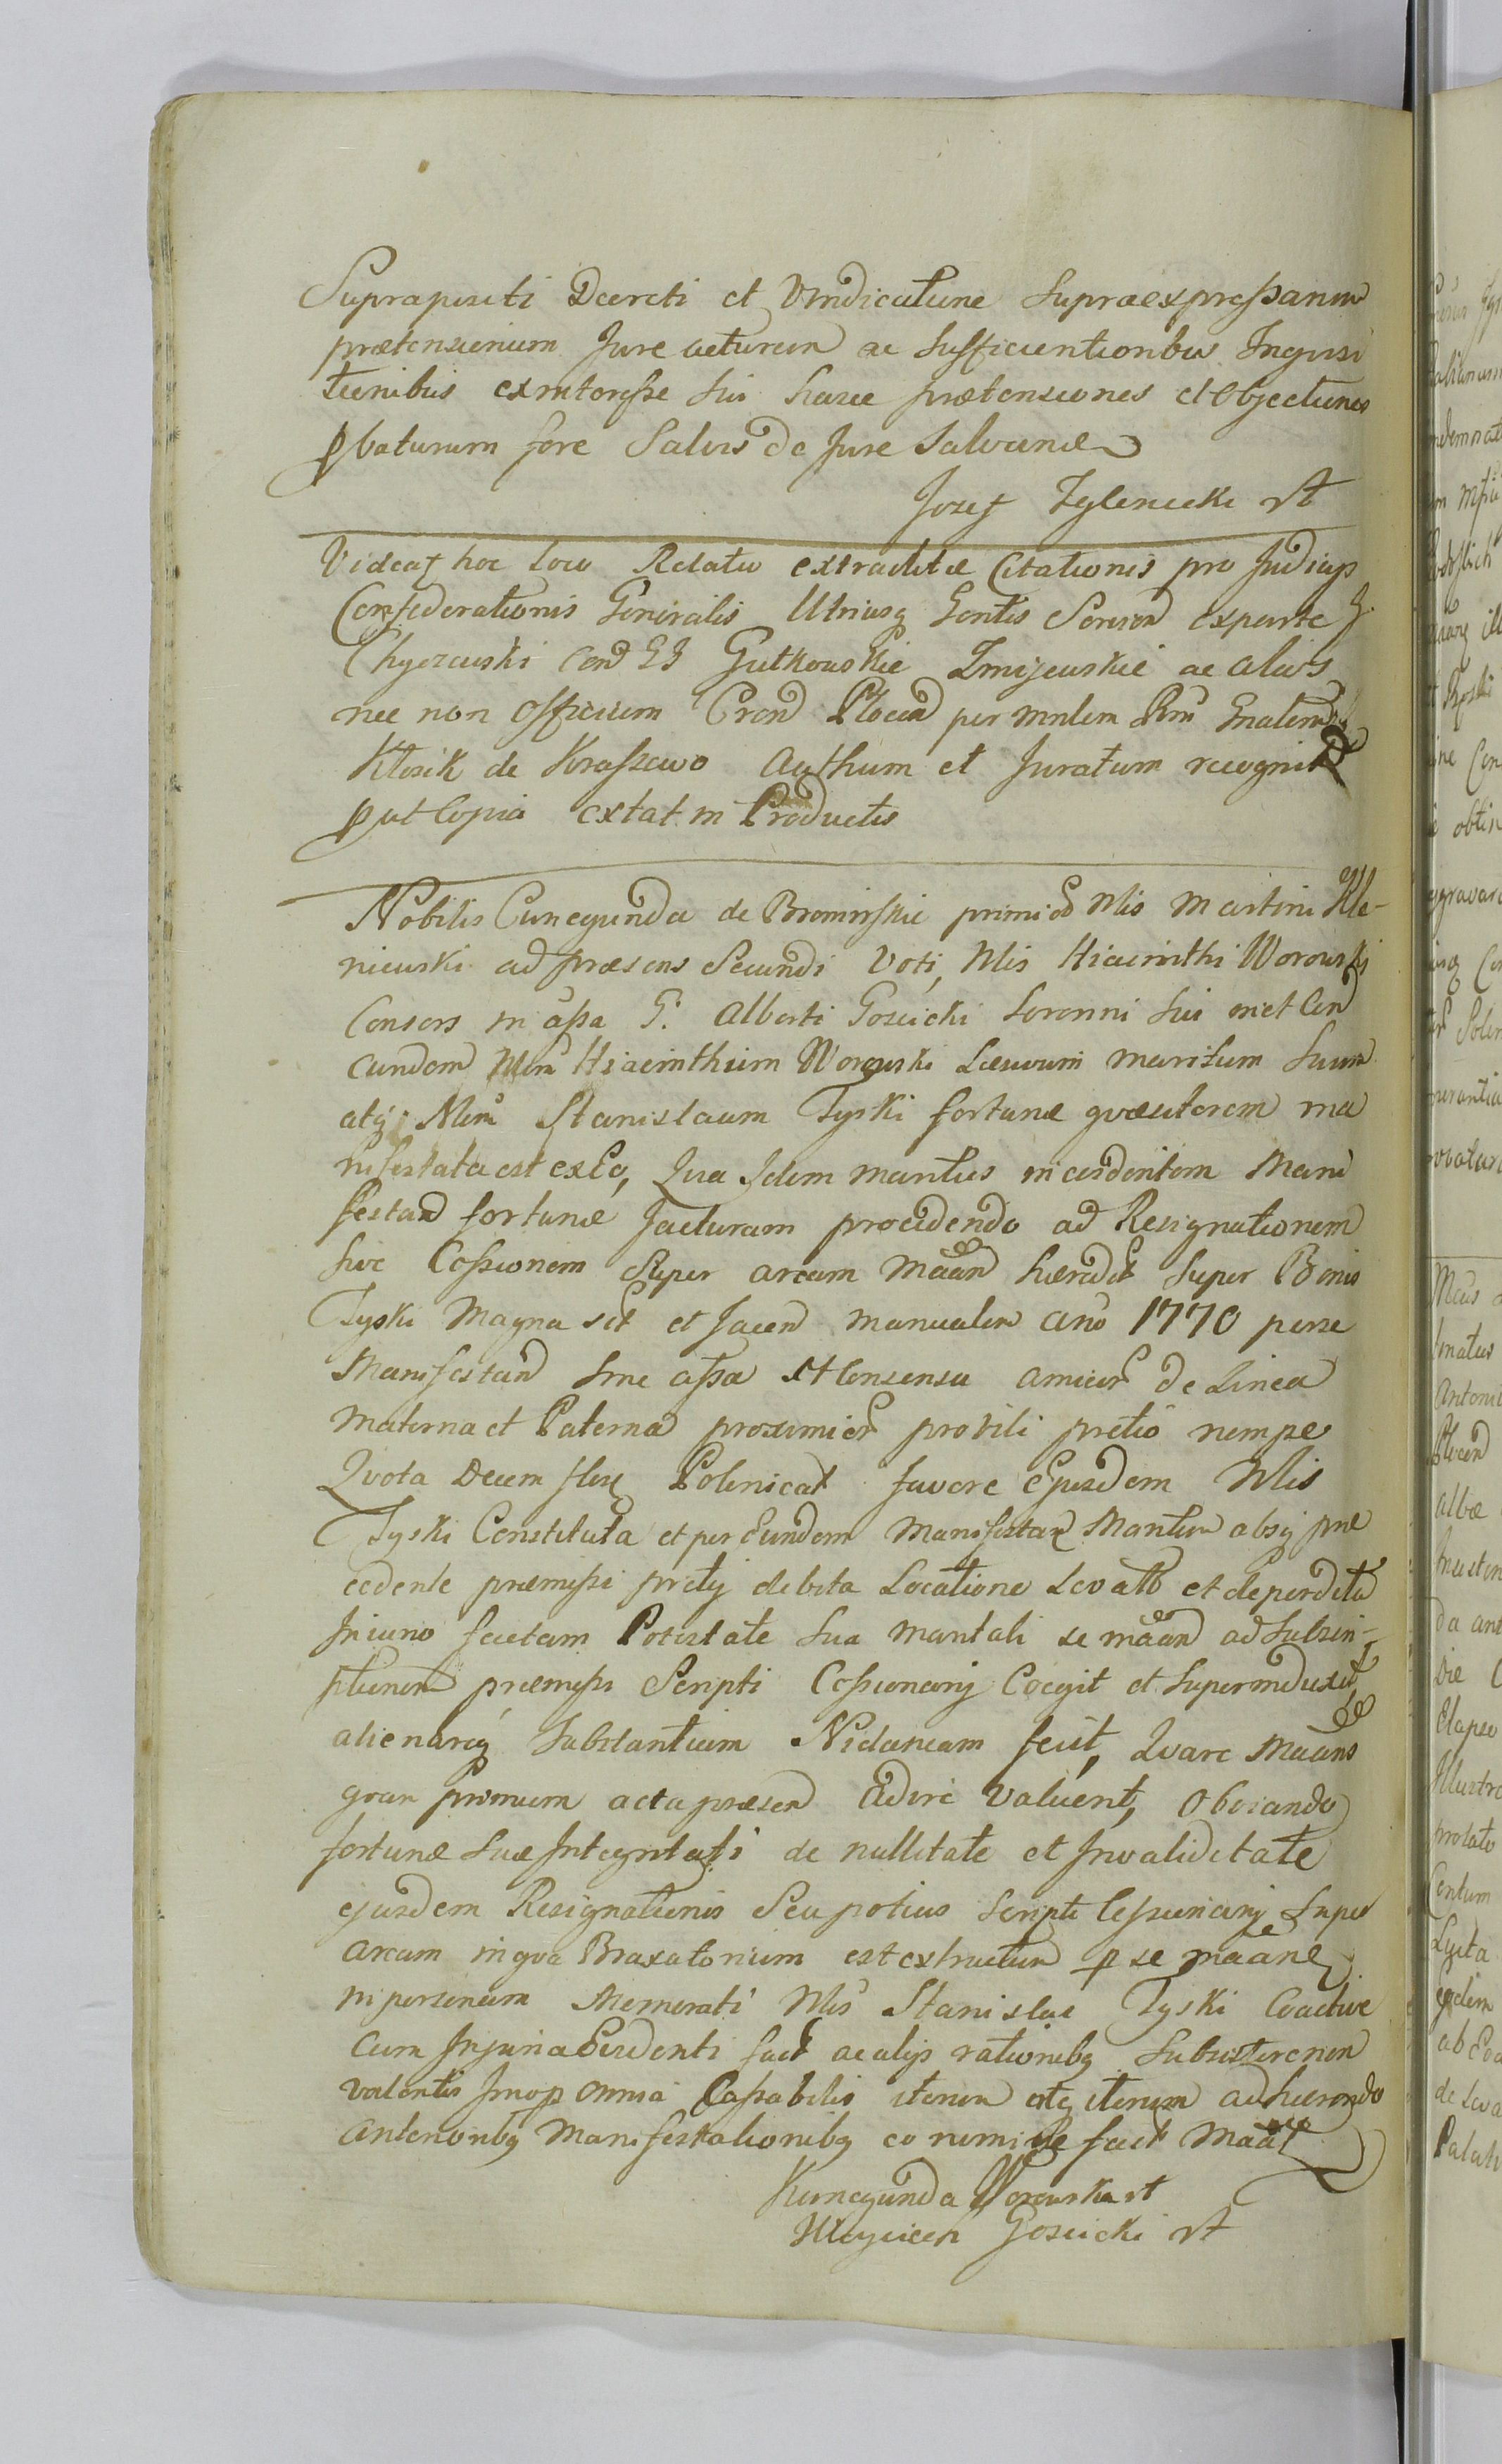 Suprapositi Decreti et Vindicatione supraexpressarum
prætensionum Jure acturum ac sufficientioribus Inqvisi
tionibus ex interesse sui hasce prætensiones et Objectiones
pbaturum fore Salvis de Jure Salvandis
Jozef Zglenicki
Videat hoc loco Relatio extraditæ Citationis pro Judicijs
Confederationis Generalis Utriusq Gentis Seren exparte G.
Chyczewski Con GG Gutkowskie Zmijewskie ac alios
nec non Officium Cren Plocen per mnlem Prm
Ktosik de Kraszewo Authum et Juratum recognit
put Copia extat in Productis
Nobilis Cunegunda de Bromirskie primi vo Nlis Martini Kle-
niewski ad præsens Secundi Voti, Nlis Hiacinthi Worowski
Consors in assa G. Alberti Goscicki Soronni sui met Con
eundem Nlem Hiacinthum Worowski Læsivum maritum suum
atq Nlem Stanislaum Tyski fortunæ qvæsitorem ma
nifestata est ex Eo, Qvia Idem maritus in evidentem Mani
festan fortunæ Jacturam procedendo ad Resignationem
sive Cessionem super aream Maan hæredit super Bonis
Tyski Magna sit et Jacen manualem ano 1770 perse
Manifestan sine assa et Consensu amicor de Linea
Materna et Paterna proximior pro vili pretio nempe
Qvota Decem flor Polonical favore Ejusdem Nlis
Tyski Constituta et per Eundem Manifestan Maritum absq præ
cedente præmissi pretij debita Locatione Levato et deperdito
In uno factam Potestate sua maritali se maan ad subscri-
ptionem præmissi Scripti Cessionarij Coegit et superinduxit,
alienareq substantiam Nidaneam fecit, Qvare Maans
qvam primum acta præsen Adire valuerit, Obviando
fortunæ suæ Integritati de nullitate et Invaliditate
ejusdem Resignationis Seu potius scripti Cessionarij super
aream in qva Braxatorium est extructum p se maane
in personam Memorati Nlis Stanislai Tyski Coactive
Cum Injuria Evidenti fact ac alijs rationibq subsistere non
valentis Imo p omnia Cassabilis iterum atq iterum adhærendo
anterioribq Manifestationibq eo nomine fact Maat
Kunegunda Worowska
Woyciech Goscicki